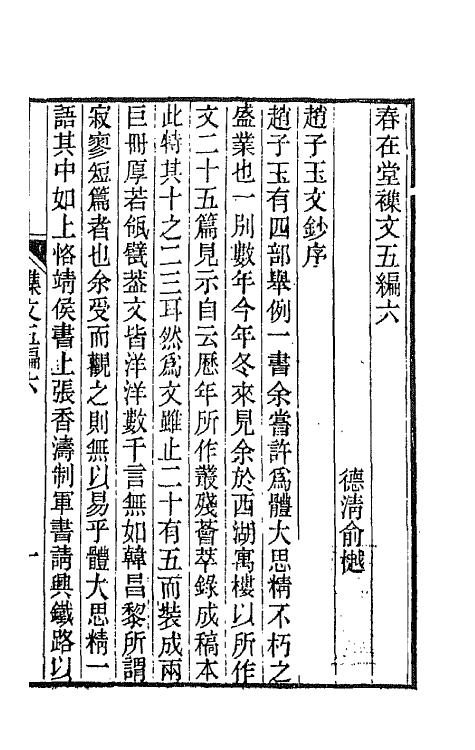 春在堂襍文五編六
德清俞樾
趙子玉文鈔序
趙子玉有四部舉例一書余嘗許爲體大思精不朽之
盛業也一別數年今年冬來見余於西湖寓樓以所作
文二十五篇見示自云歷年所作叢殘薈萃錄成稿本
此特其十之二三耳然爲文雖止二十有五而裝成兩
巨冊厚若瓴甓葢文皆洋洋數千言無如韓昌黎所謂
寂寥短篇者也余受而觀之則無以易乎體大思精一
語其中如上恪靖侯書上張香濤制軍書請興鐵路以
襍文五編六
一